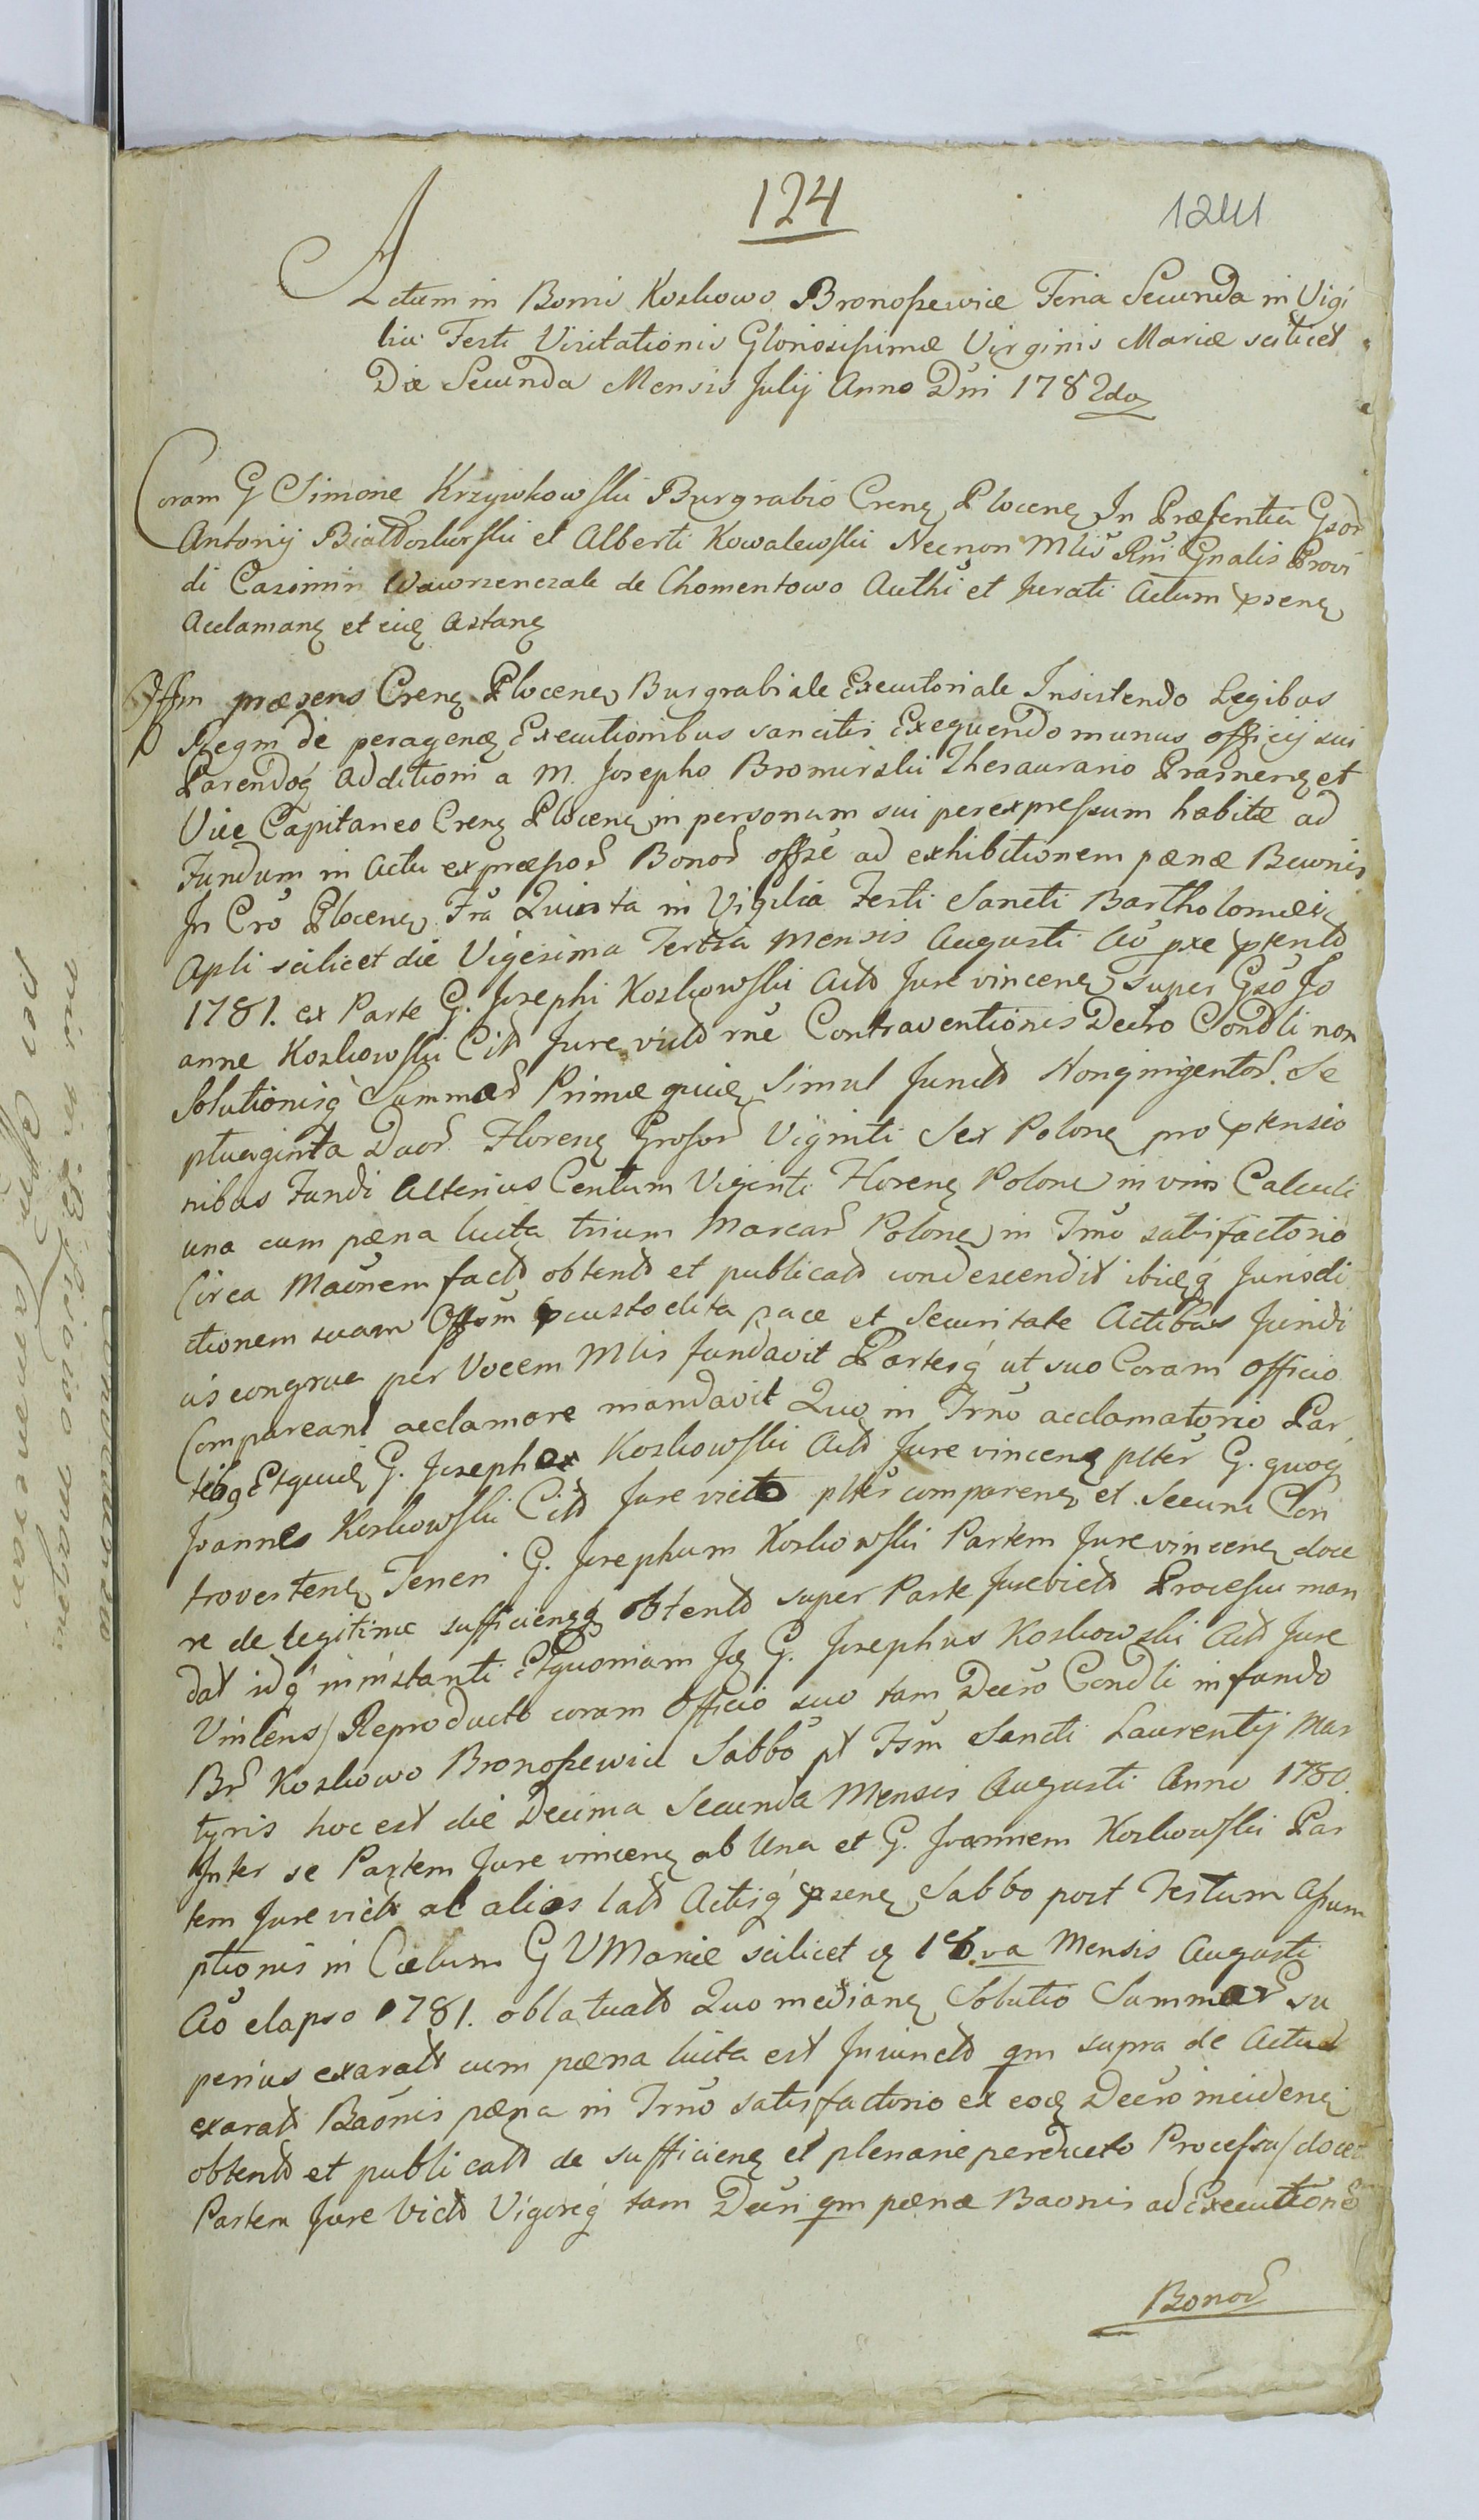 124
1241
Actum in Bonis Kozłowo Bronoszewice Feria Secunda in Vigi
lia Festi Visitationis Gloriosissimæ Virginis Mariæ scilicet
Die Secunda Mensis Julij Anno Dni 1782do
Coram G Simone Krzywkowski Burgrabio Crenz Plocenz In Præsentia Gsor
Antonij et Alberti Kowalewski Necnon Mlis Rni Gnalis Provi
di Casimiri Wawrzenczak de Chomentowo Authi et Jurati Actum pxsenz
Acclamanz et Astanz
Offm præsens Crenz Plocenz Burgrabiale Executoriale Insistendo Legibus
Regni de peragenz Executionibus sancitis Exequendo munus officij sui
Parendoq additioni a M. Josepho Bromirski Thesaurario Prasnenz et
Vice Capitaneo Crenz Plocenz in personam sui per expressum habitæ ad
Fundum in Actu expræssor Bonor offse ad exhibitionem pænæ
In Cro Plocenz Fra Quinta in Vigilia Festi Sancti Bartholomæi
Apli scilicet die Vigesima Tertia Mensis Augusti Ao pxe
1781. ex Parte G. Josephi Kozłowski Actd Jure vincenz super Gso Jo
anne Kozłowski Citd Jure victd rne Contraventionis Decro Condli non
Solutionisq Summar Primæ quidz Simul Junctd Nongingentor. Se
ptuaginta Duor Florenz Grosor Viginti Sex Polonz pro ptensio
nibus Fundi Alterius Centum Viginti Florenz Polonz in vim Calculi
una cum pæna lucta trium Marcar Polonz in Trno satisfactorio
Circa Maonem factd obtentd et publicatd condescendit ibidzq Jurisdi
ctionem suam Offsm pcustodita pace et Securitate Actibus Juridi
cis congrua per Vocem Mlis fundavit Partesq ut suo Coram officio
Compareant acclamare mandavit Quo in Trno acclamatorio Par
tibq Etquidz G. Josephus Kozłowski Actd Jure vincenz plter G. quoq
Joannes Kozłowski Citd Jure victo plter comparenz et Secum Con
trovertenz Teneri G. Josephum Kozłowski Partem Jure vincenz doce
re de legitime sufficienzq obtentd super Parte Jurevictd Processu man
dat idq in instanti Etquoniam Jz G. Josephus Kozłowski Actd Jure
Vincens Reproducto coram Officio suo tam Decro Condli in fundo
Br Kozłowo Bronoszewice Sabbo pt Fsm Sancti Laurentij Mar
tyris hoc est die Decima Secunda Mensis Augusti Anno 1780
Inter se Partem Jure vincenz ab Una et G. Joannem Kozłowski Par
tem Jure victd ab alios latd Actisq pxsenz Sabbo post Festum Assum
ptionis in Cælum G V Mariæ scilicet z 18va Mensis Augusti
Ao elapso 1781. oblatuatd Quo medianz Solutio Summar su
perius exaratd cum pæna lucta est Injunctd qm supra de Actu
exaratd Baonis pæna in Trno satisfactorio ex eodz Decro incidenz
obtentd et publicatd de sufficienz et plenarie perducto Processu docet
Partem Jure Victd Vigoreq tam Decri qm pænæ Baonis ad Executione
Bonor